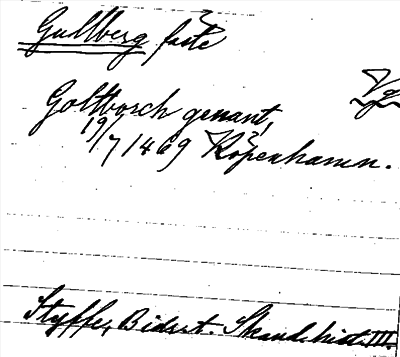 Gullberg feste
Goltborch genant,
19/7 1469 Köpenhamn.
Styffe, Bidrt. Skand. hist. III.